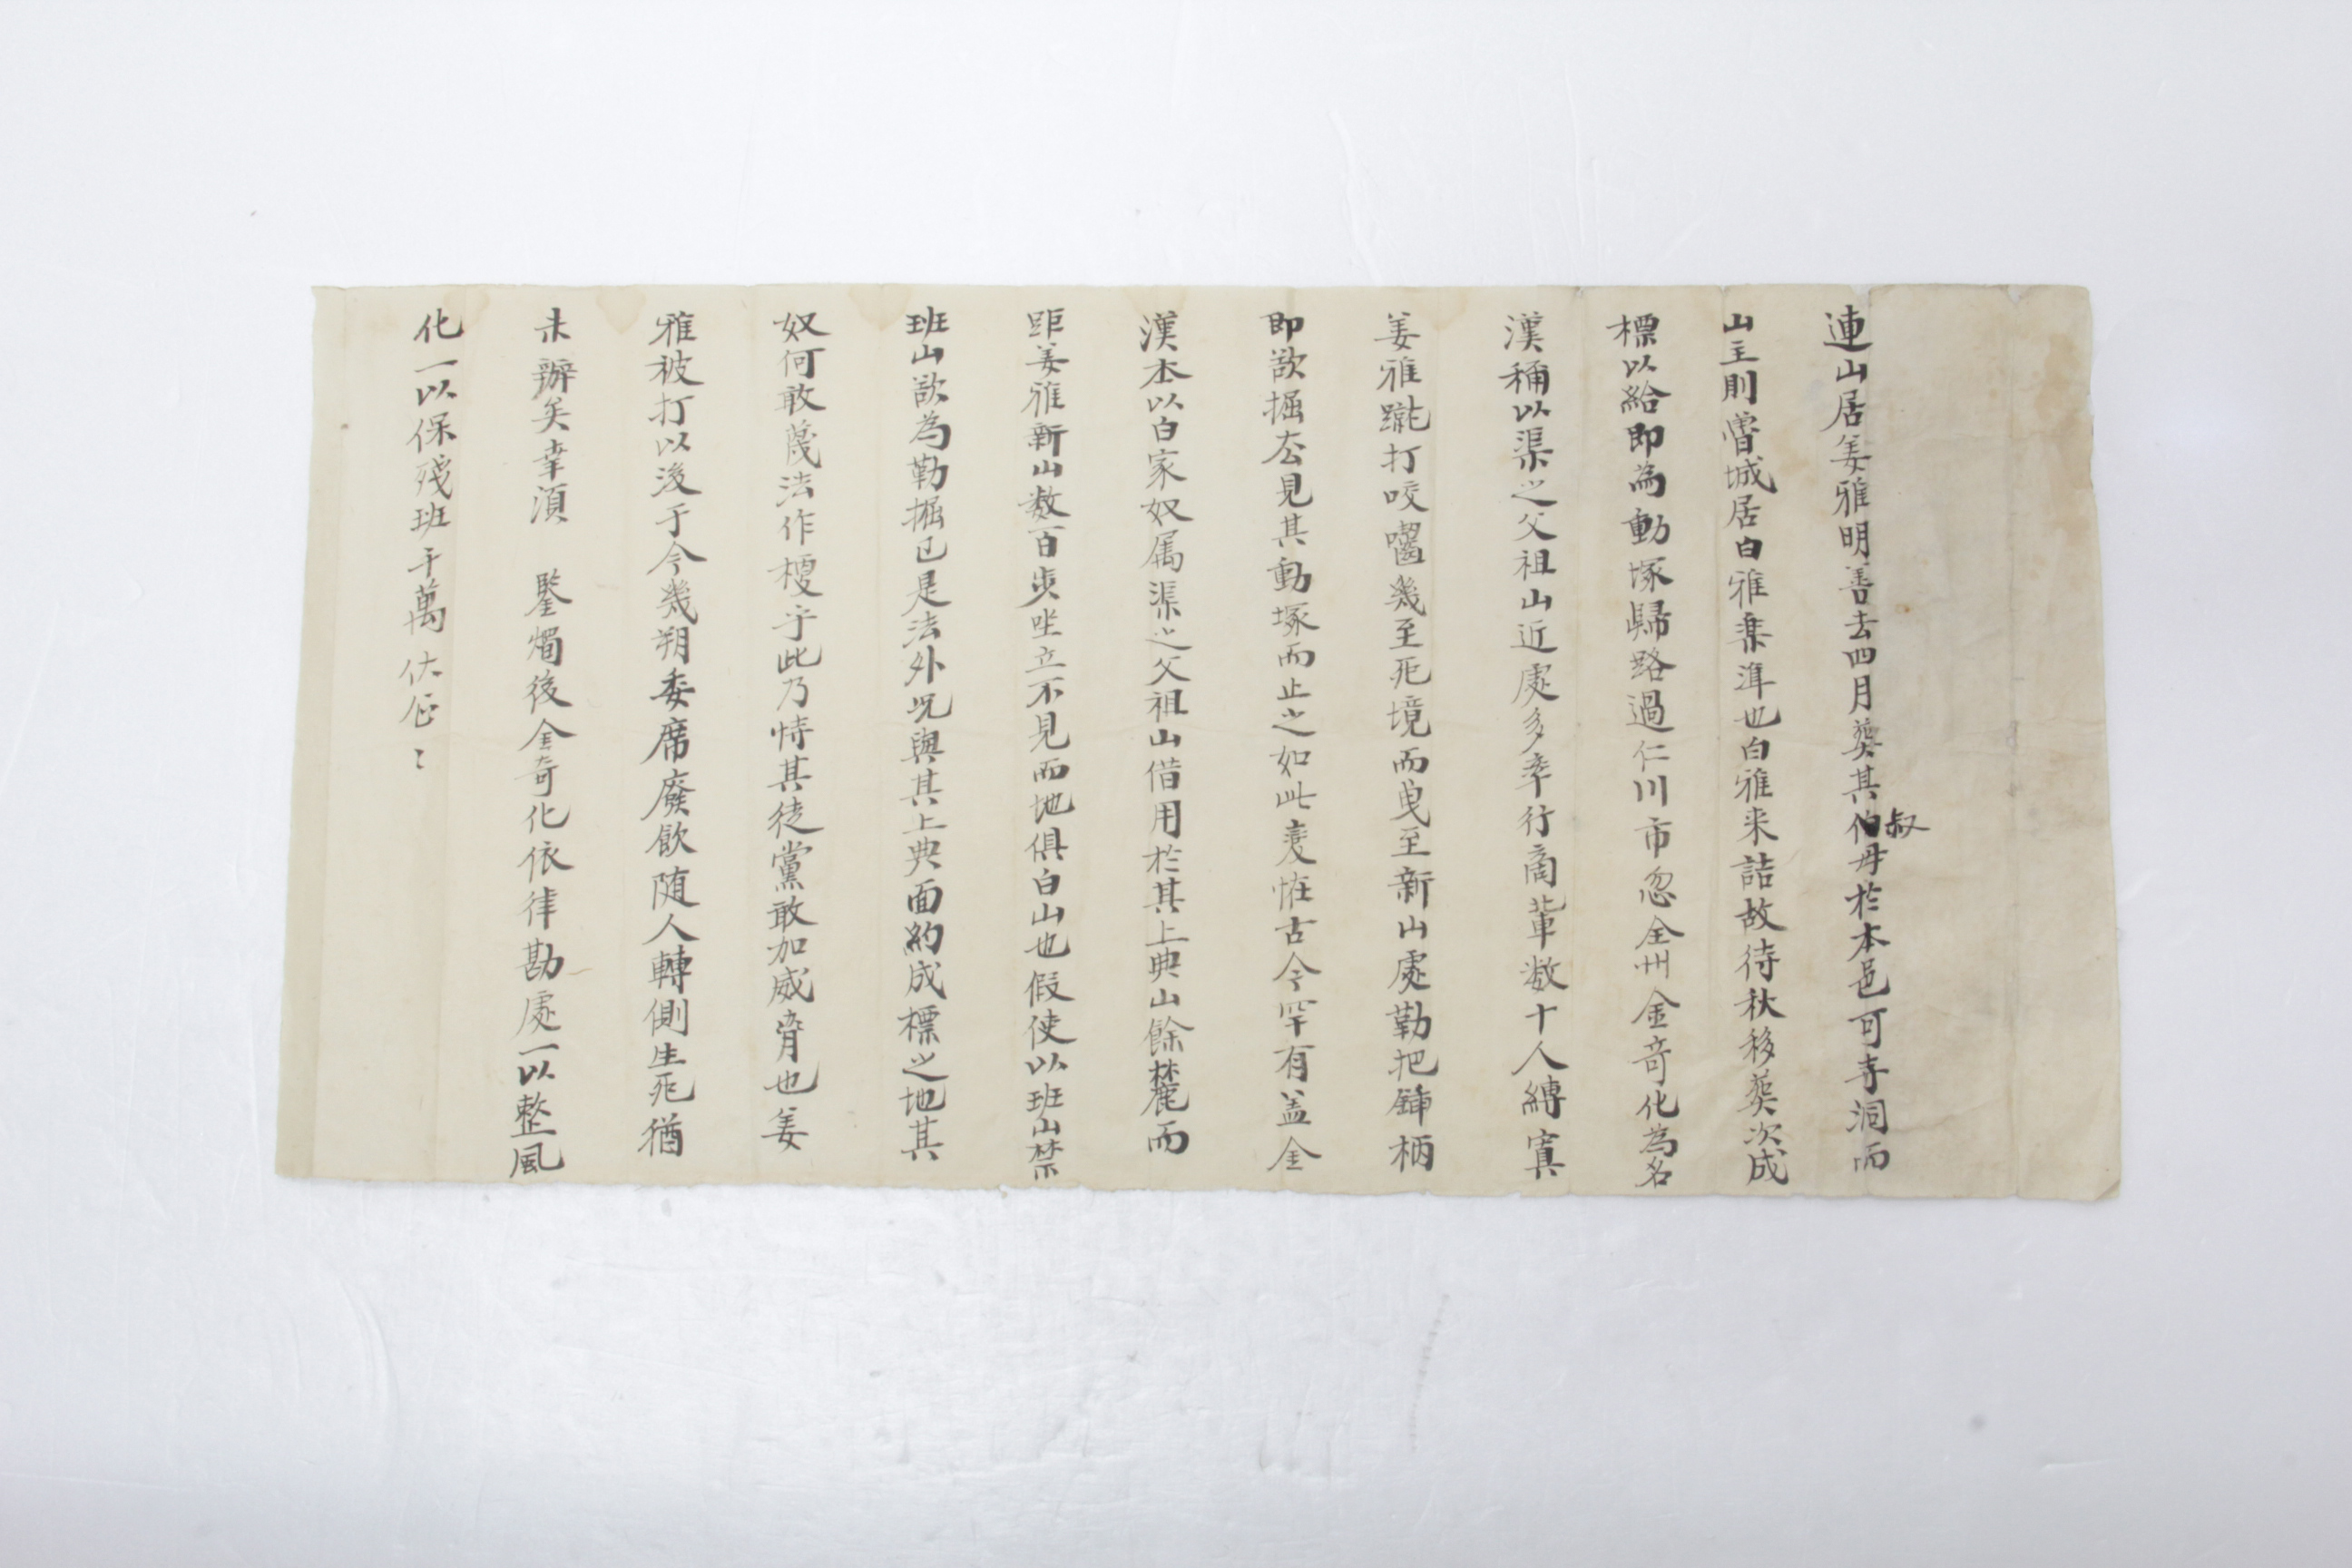 連山居姜雅明善去四月葬其叔母於本邑可寺洞而
山主則曾城居白雅集淳也白雅来詰故待秋移葬次成
標以給即為動塚歸路過仁川市忽全州金奇化為名
漢稱以渠之父祖山近處多率行商軰数十人縛寘
姜雅蹴打咬囓幾至死境而曳至新山處勒把鍤柄
即欲掘厺見其動塚而止之如此変恠古今罕有盖金
漢本以白家奴属渠之父祖山借用於其上典山餘麓而
距姜雅新山数百步坐立不見而地俱白山也假使以班山禁
班山欲為勒掘已是法外况與其上典面約成標之地其
奴何敢蔑法作梗乎此乃恃其徒黨敢加威脅也姜
雅被打以後于今幾朔委席廢飲随人轉側生死猶
未辦矣幸湏 鑒燭後金奇化依律勘處一以整風
化一以保殘班千萬伏企〻